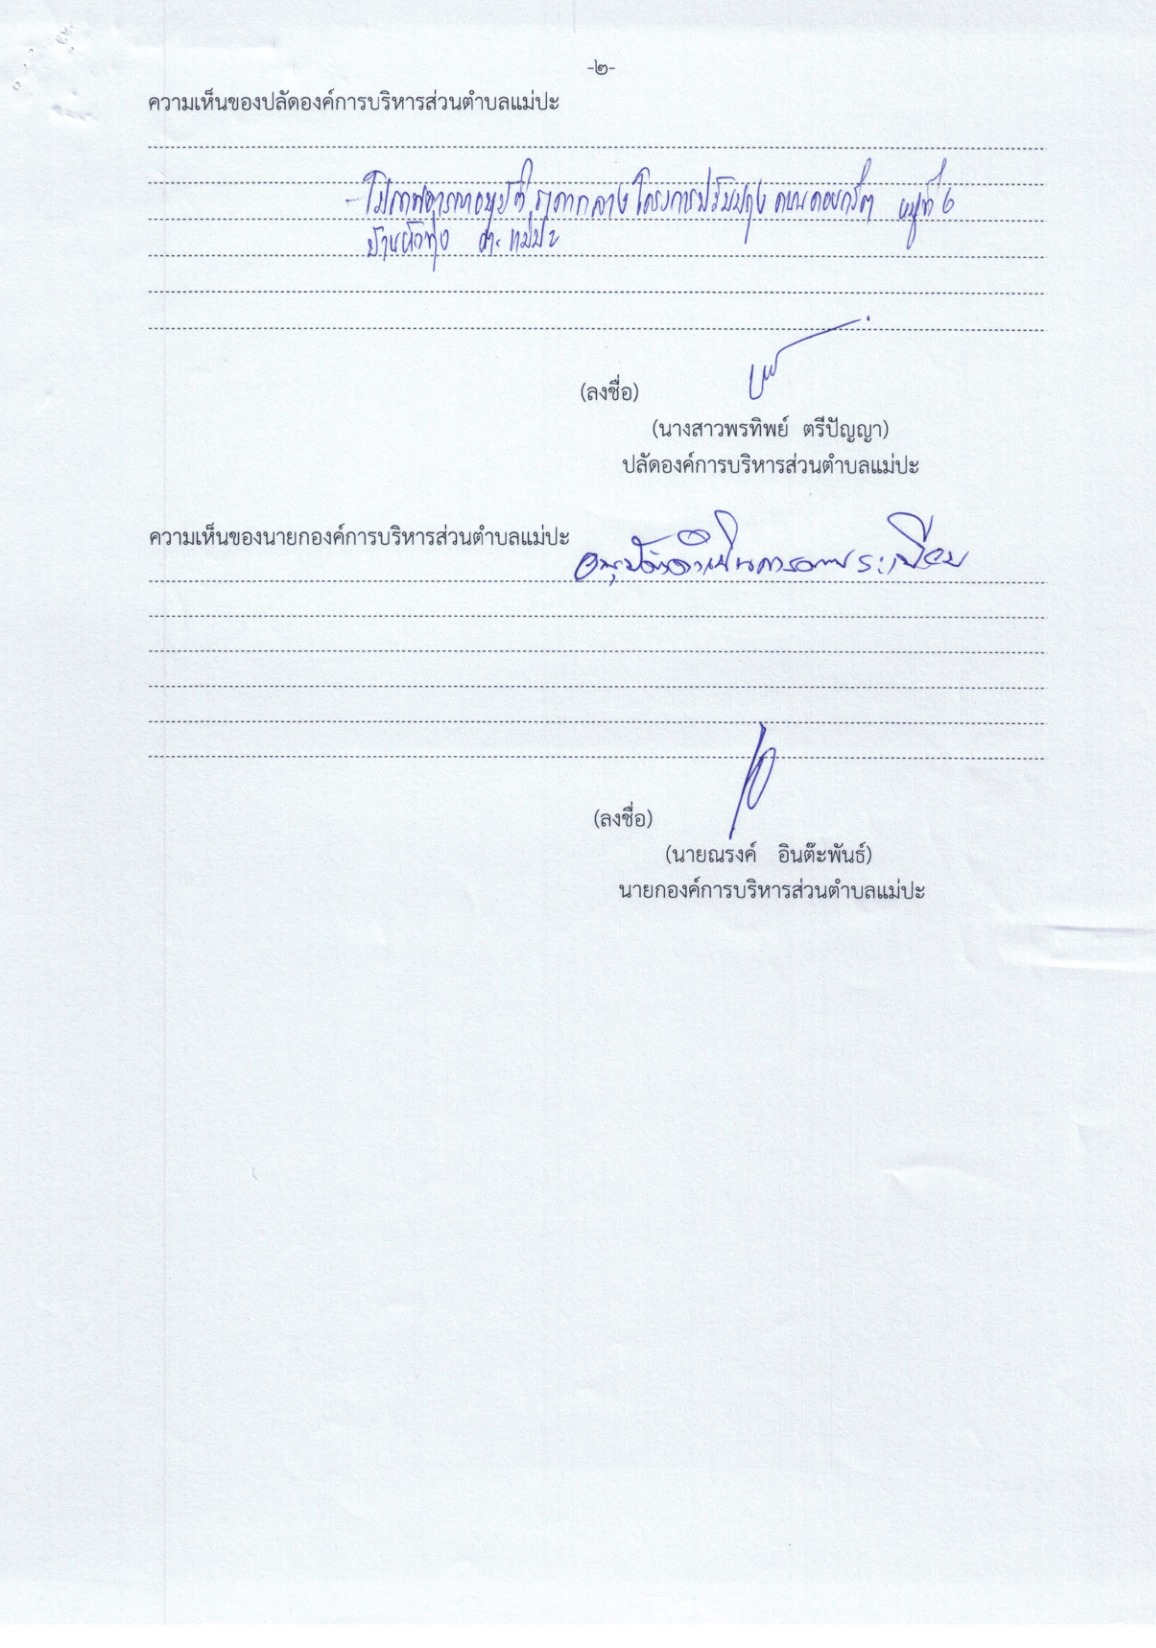 -๒-
ความเห็นของปลัดองค์การบริหารส่วนตำบลแม่ปะ
อนุมัติ ราคากลาง โครงการปรับปรุง ถนนคอนกรีต หมู่ที่ 6
บ้านหัวทุ่ง ต. แม่ปะ
(ลงชื่อ)
(นางสาวพรทิพย์ ตรีปัญญา)
ปลัดองค์การบริหารส่วนตำบลแม่ปะ
ความเห็นของนายกองค์การบริหารส่วนตำบลแม่ปะ
อนุมัติ/ดำเนินการตามระเบียบ
(ลงชื่อ)
(นายณรงค์ อินต๊ะพันธ์)
นายกองค์การบริหารส่วนตำบลแม่ปะ